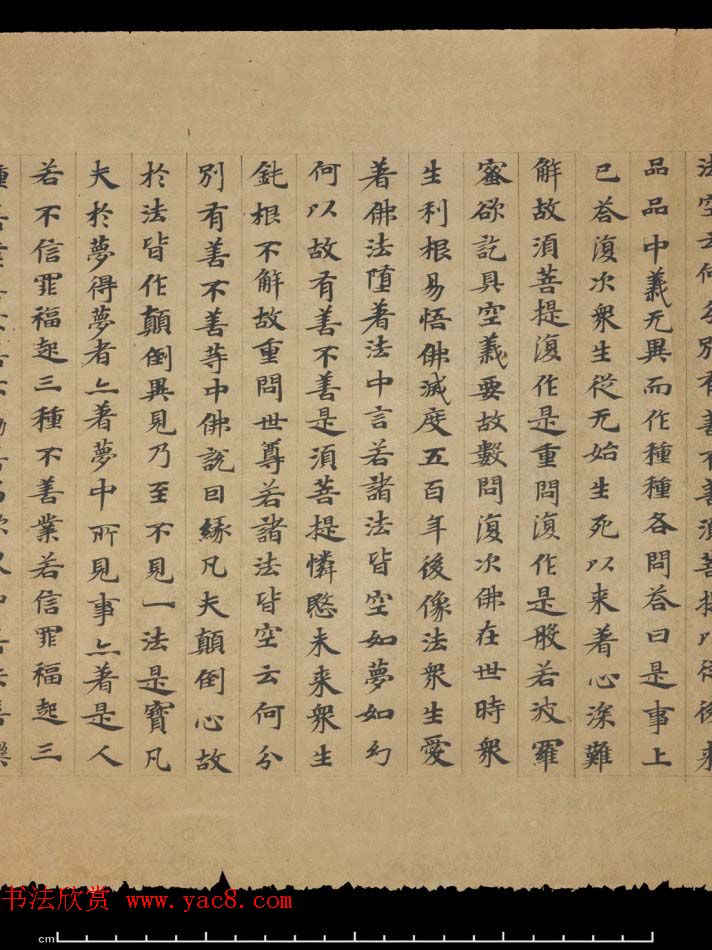 法空云何分別有善不善湏菩提以從後来
品品中義无異而作種種各問荅曰是事上
已荅復次衆生從无始生死以来著心深難
解故湏菩提復作是重問復作是般若波羅
蜜欲訖具空義要故數問復次佛在世時衆
生利根易悟佛滅度五百年後像法衆生愛
著佛法堕著法中言若諸法皆空如夢如幻
何以故有善不善是湏菩提憐愍未来衆生
鈍根不解故重問世尊若諸法皆空云何分
別有善不善等中佛說囙緣凡夫顛倒心故
於法皆作顛倒異見乃至不見一法是實凡
夫於夢得夢者亦著夢中所見事亦著是人
若不信罪福起三種不善業若信罪福起三
书法欣赏 www.yac8.com
cm